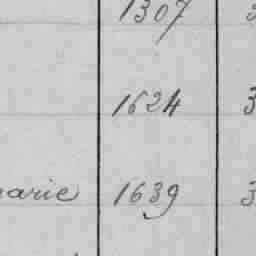 1307 3
1624 3
arie 1639 3